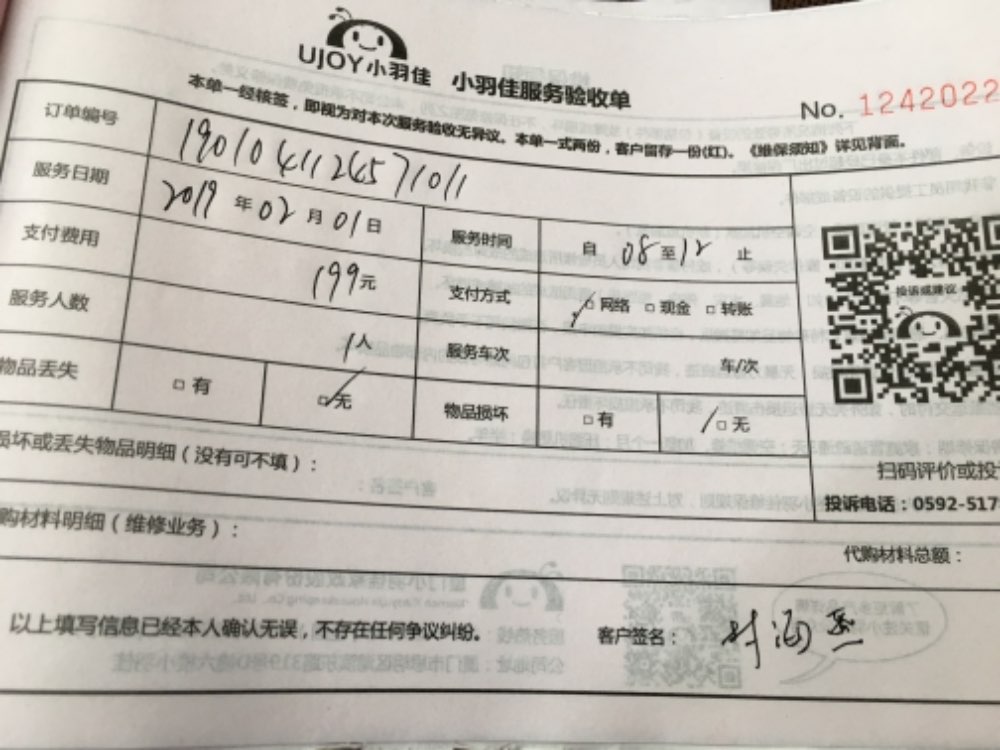 UJOY小羽佳 小羽佳服务验收单
No. 1242022
本单一经核签，即视为对本次服务验收无异议。本单一式两份，客户留存一份(红)。《维保须知》详见背面。
订单编号 190104112457 1011
服务日期 2019 年 02 月 01 日 服务时间 自 08 至 12 止
支付费用 199元 支付方式 网络 现金 转账
服务人数 1人 服务车次 车/次
物品丢失 有 无 物品损坏 有 无
投诉或建议
扫码评价或投
投诉电话：0592-517
损坏或丢失物品明细（没有可不填）：
购材料明细（维修业务）：
代购材料总额：
以上填写信息已经本人确认无误，不存在任何争议纠纷。 客户签名：